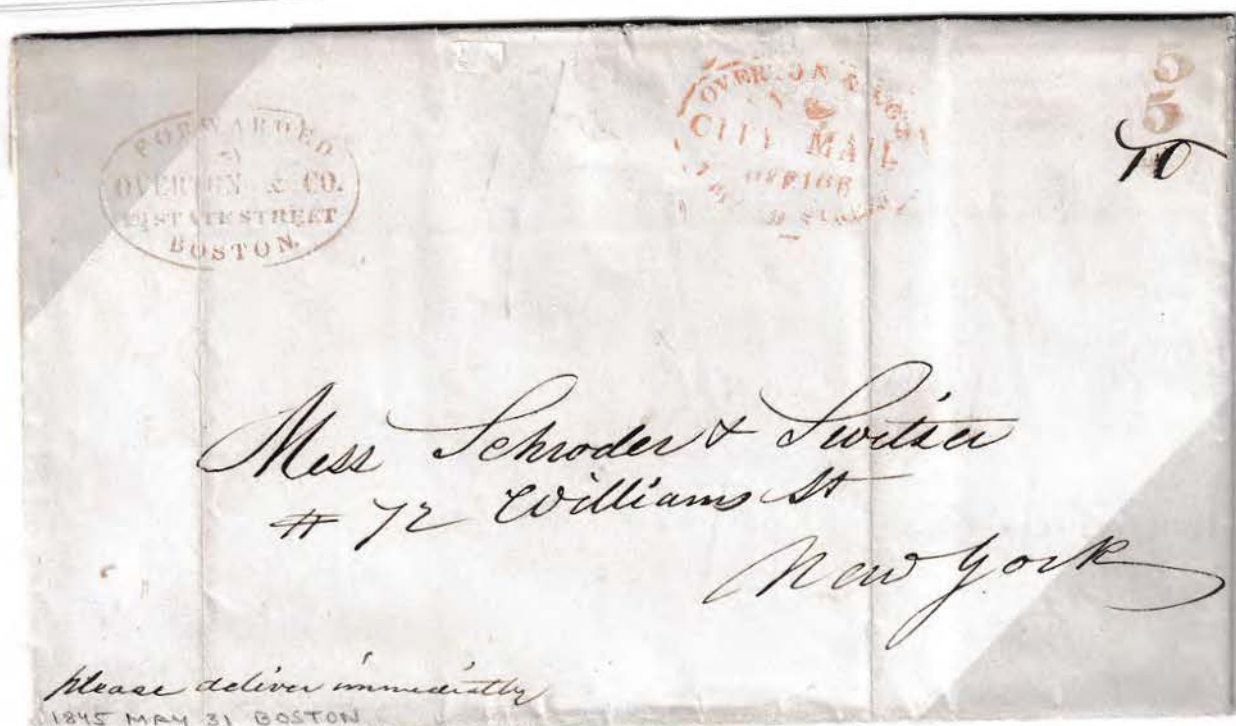 FORWARDED
BY
OVERTON & CO.
STATE STREET
BOSTON.
OVERTON & CO'S
CITY MAIL
OFFICE
STREET
5
5
10
Mess Schroder & Switzer
# 72 Williams St
New York
please deliver immediatly
1845 MAY 31 BOSTON